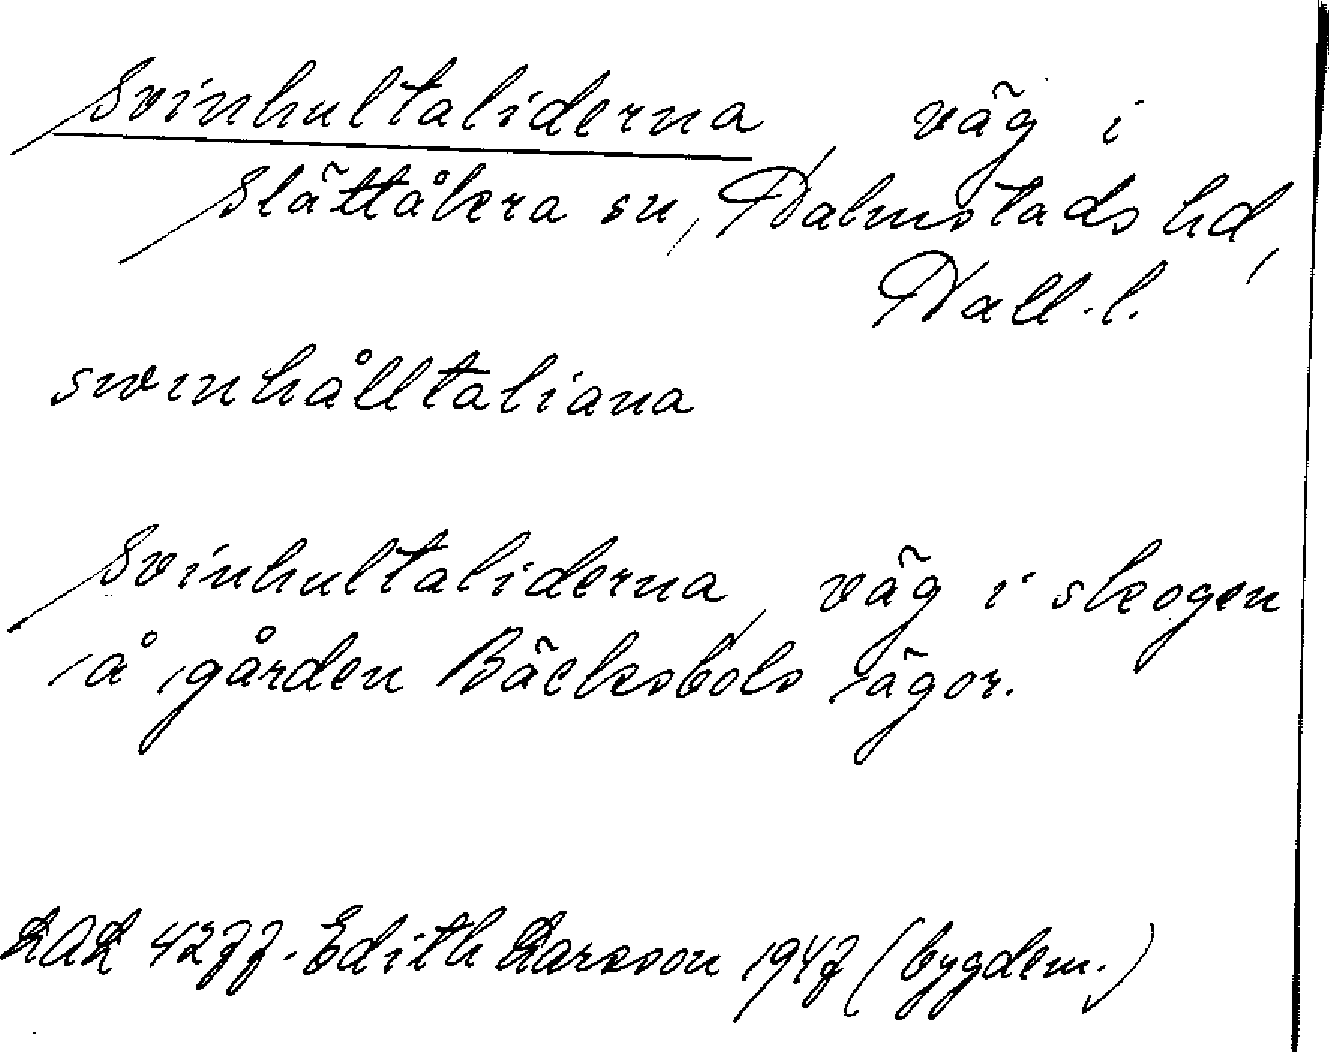 Svinhultaliderna, väg i
Slättåkra sn, Halmstads hd,
Hall. l.
svinhålltaliana
Svinhultaliderna, väg i skogen
å gården Bäcksbols ägor.
LAL 4277. Edith Larsson 1947 (bygdem.)